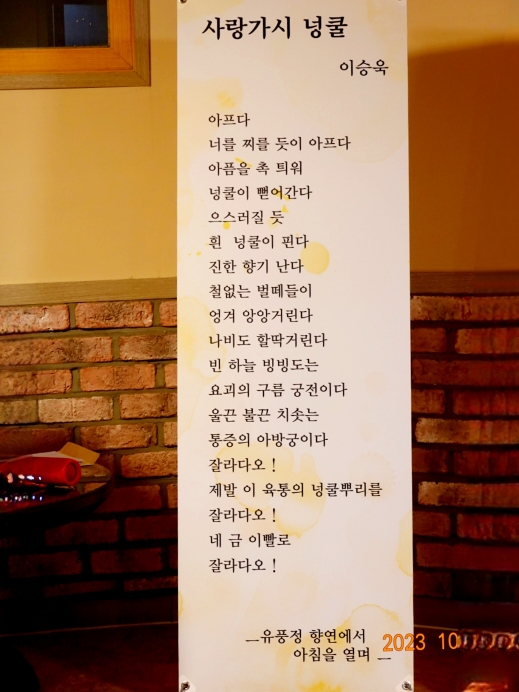 사랑가시 넝쿨
이승욱
아프다
너를 찌를 듯이 아프다
아픔을 촉 틔워
넝쿨이 뻗어간다
으스러질 듯
흰 넝쿨이 핀다
진한 향기 난다
철없는 벌떼들이
엉겨 앙앙거린다
나비도 할딱거린다
빈 하늘 빙빙도는
요괴의 구름 궁전이다
울끈 불끈 치솟는
통증의 아방궁이다
잘라다오 !
제발 이 육통의 넝쿨뿌리를
잘라다오 !
네 금 이빨로
잘라다오 !
—유풍정 향연에서
아침을 열며 —
2023 10